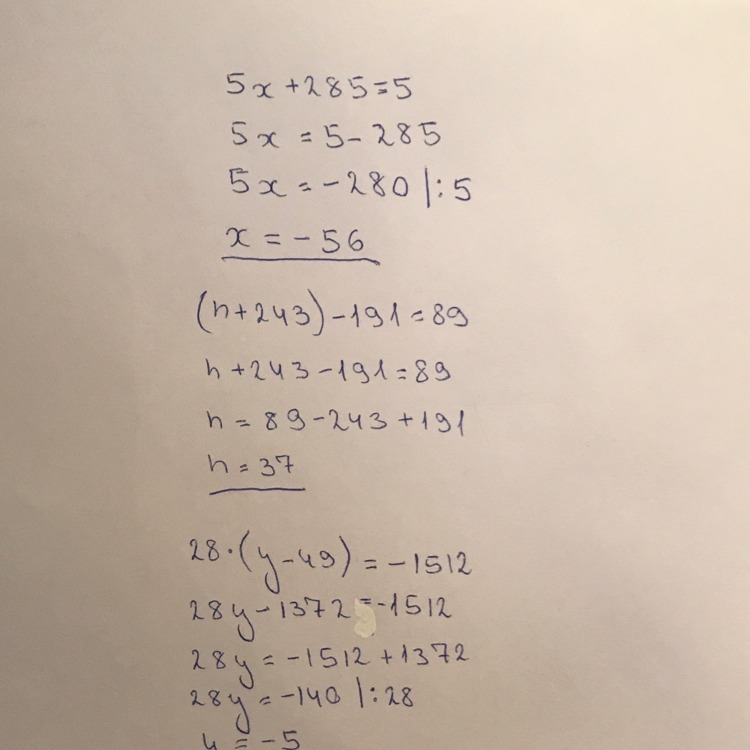 5x + 285 = 5
5x = 5 - 285
5x = -280 |: 5
x = -56
(n + 243) - 191 = 89
n + 243 - 191 = 89
n = 89 - 243 + 191
n = 37
28 · (y - 49) = -1512
28y - 1372 = -1512
28y = -1512 + 1372
28y = -140 |: 28
y = -5